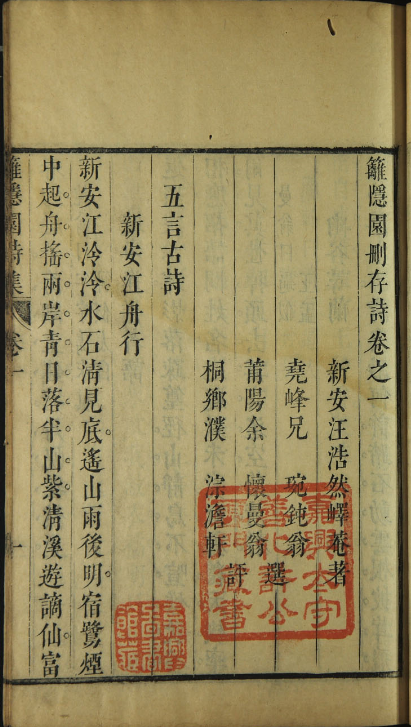 籬隱園刪存詩卷之一
新安汪浩然嶧菴著
堯峰兄 琬鈍翁
莆陽余 懷曼翁 選
桐鄉濮 淙澹軒 評
五言古詩
新安江舟行
新安江泠泠水石清見底遙山雨後明宿鷺煙
中起舟搖兩岸青日落半山紫清溪遊謫仙富
籬隱園詩集 卷一 一
嘉興圖書館藏